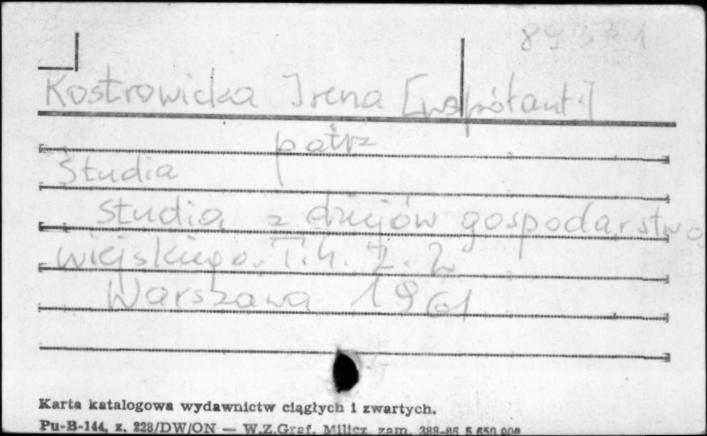 Kostrowicka Irena [współaut.]
patrz
Studia
Studia z dziejów gospodarstwa
wiejskiego. T.4. z. 2
Warszawa 1961
Karta katalogowa wydawnictw ciągłych i zwartych.
Pu-B-144, z. 228/DW/ON — W.Z.Graf. Milicz zam. 388-86 5 650 000